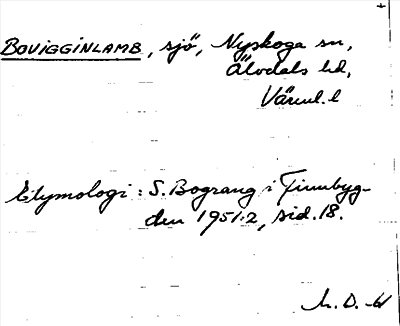 BOVIGGINLAMB, sjö, Nyskoga sn,
Älvdals hd,
Värml. l
Etymologi: S. Bograng i Finnbyg-
den 1951:2, sid. 18.